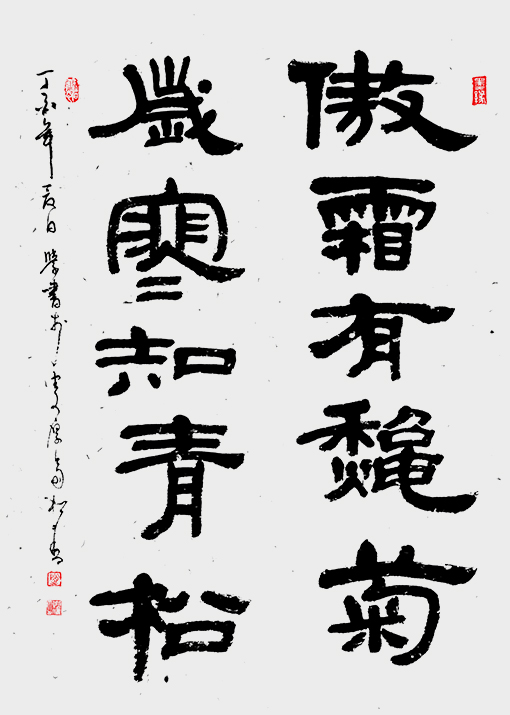 傲霜有龝菊
歲寒知青松
丁亥年夏日學書於